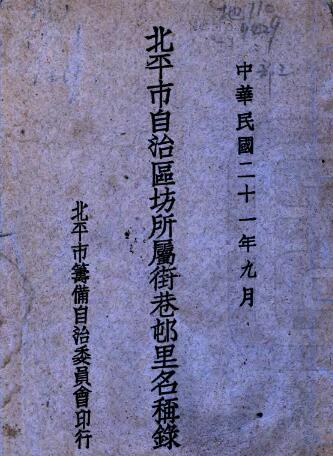 中華民國二十一年九月
北平市自治區坊所屬街巷邨里名稱錄
北平市籌備自治委員會印行